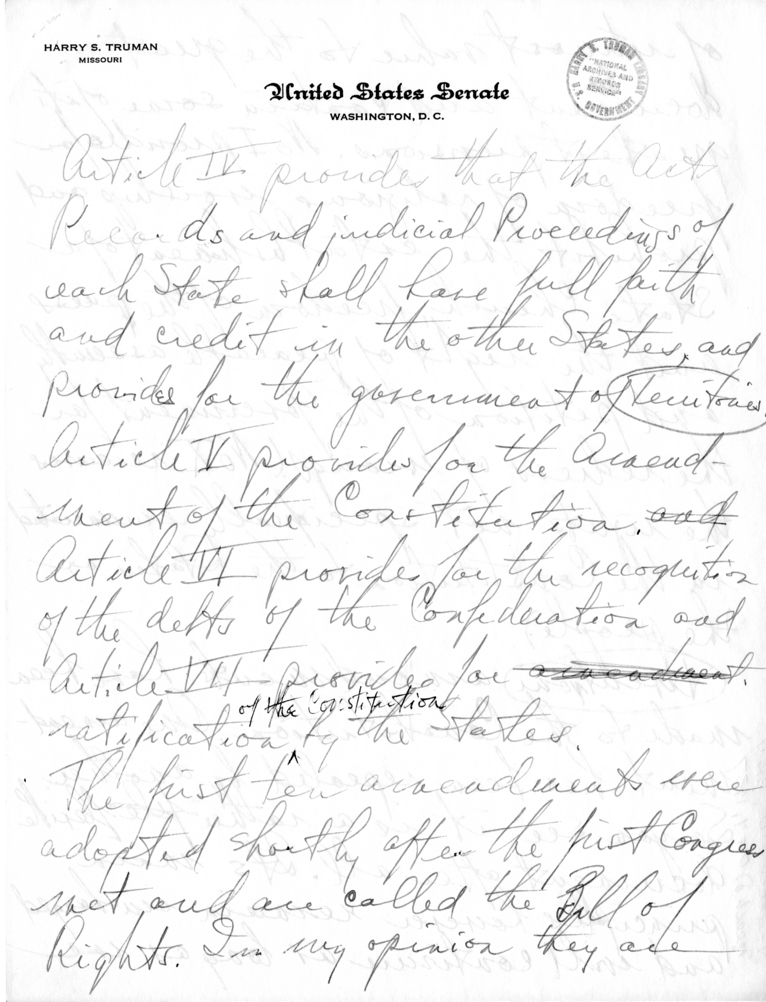 HARRY S. TRUMAN
MISSOURI
HARRY S. TRUMAN LIBRARY
"NATIONAL
ARCHIVES AND
RECORDS
SERVICE"
U.S. GOVERNMENT
United States Senate
WASHINGTON, D.C.
Article IV provides that the Acts
Records and judicial Proceedings of
each State shall have full faith
and credit in the other States, and
provides for the government of Territories.
Article V provides for the Amend-
ment of the Constitution. and
Article VI provides for the recognition
of the debts of the Confederation and
Article VII provides for amendment.
of the Constitution
ratification by the States.
The first ten amendments were
adopted shortly after the first Congress
met and are called the Bill of
Rights. In my opinion they are